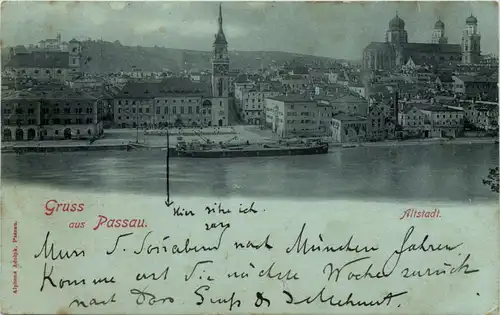 Gruss
aus Passau.
Altstadt.
Hier sitze ich.
Muss d. Sonnabend nach München fahren
Komme erst die nächste Woche zurück
nach Gruß
Alphons Adolph, Passau.